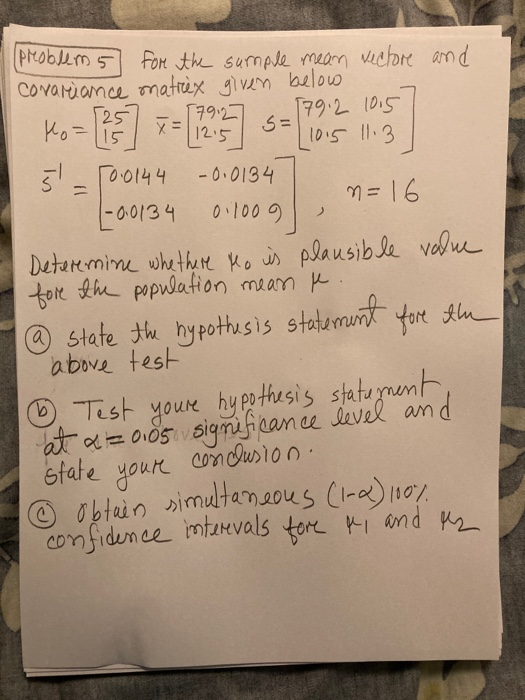 Problem 5 For the sample mean vectore and
covariance matrix given below
μ₀ = [25 15] x̄ = [79.2 12.5] S = [79.2 10.5 10.5 11.3]
S⁻¹ = [0.0144 -0.0134 -0.0134 0.1009], n = 16
Determine whether μ₀ is plausible value
fore the population mean μ.
(a) state the hypothesis statement fore the
above test
(b) Test youre hypothesis statement
at α = 0.05 significance level and
state youre conclusion.
(c) obtain simultaneous (1-α)100%
confidence intervals fore μ1 and μ2